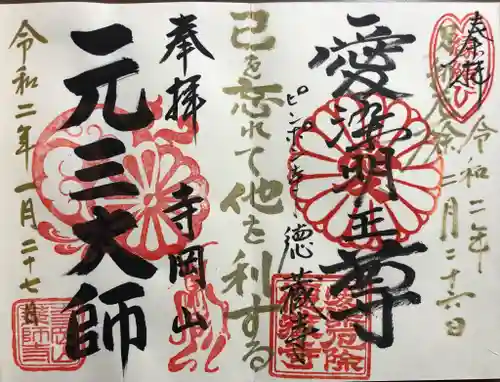 奉拝
足利厄除
令和二年二月二十六日
愛染明王尊
ピンポン寺
徳蔵寺
己を忘れて他を利する
奉拝
寺岡山
元三大師
令和二年一月二十七日